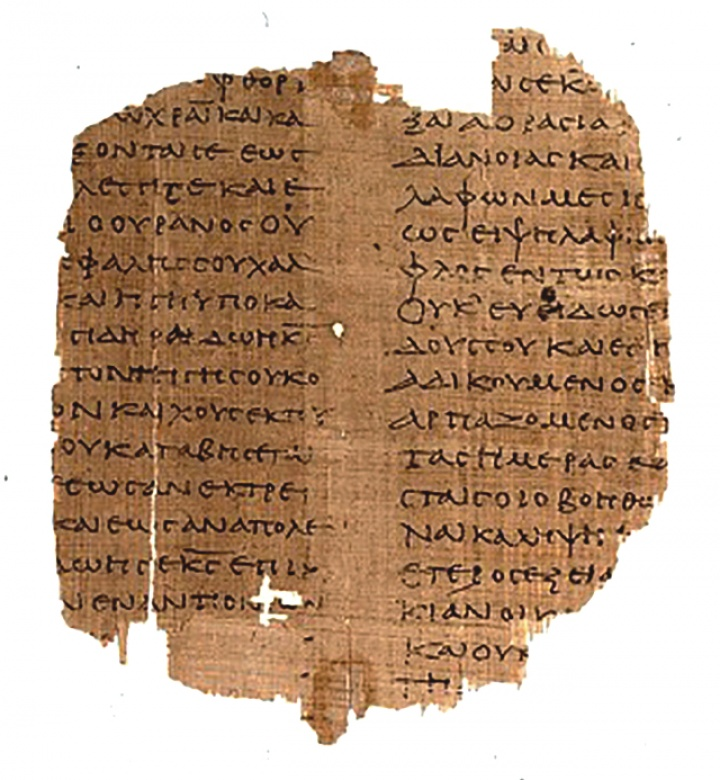 ΦΘΟΡΙ
ΩΧΡΑΙΚΑΙΚΑ
ΞΟΝΤΑΙΣΕ ΕΩΣ
ΛΕΣΗΣΕΚΑΙΕ
ΟΟΥΡΑΝΟΣΟΥ
ΕΦΑΛΗΣΣΟΥΧΑΛ
ΚΑΙΗΓΗΥΠΟΚΑ
ΣΙΔΗΡΑ ΔΩΗΚΣ
ΤΟΝΤΗΓΗΣΟΥΚΟ
ΟΝΚΑΙΧΟΥΣΕΚΤΟΥ
ΟΥΚΑΤΑΒΗΣΕΤΑΙ
ΕΩΣΑΝΕΚΤΡΕΙ
ΚΑΙΕΩΣΑΝΑΠΟΛΕ
ΔΩΗΣΕΚΣ ΕΠΙΚ
ΝΕΝΑΝΤΙΟΝΤΩΝ
ΑΙΣΕΚ
ΞΑΙΑΟΡΑΣΙΑ
ΔΙΑΝΟΙΑΣΚΑΙ
ΛΑΦΩΝΜΕΣΗ
ΩΣΕΙΨΗΛΑΦΗ
ΦΛΟΣΕΝΤΩΙΣΚ
ΟΥΚΕΥΟΔΩΣΕΙ
ΔΟΥΣΣΟΥΚΑΙΕΣΗ
ΑΔΙΚΟΥΜΕΝΟΣ
ΑΡΠΑΖΟΜΕΝΟΣ
ΤΑΣΗΜΕΡΑΣΚΑ
ΣΤΑΙΣΟΙΟΒΟΗΘΩ
ΝΑΙΚΑΛΗΨΗ
ΕΤΕΡΟΣΕΞΕΙΑ
ΚΙΑΝΟΙΚ
ΚΑΙΟΥΚ
ΤΗ